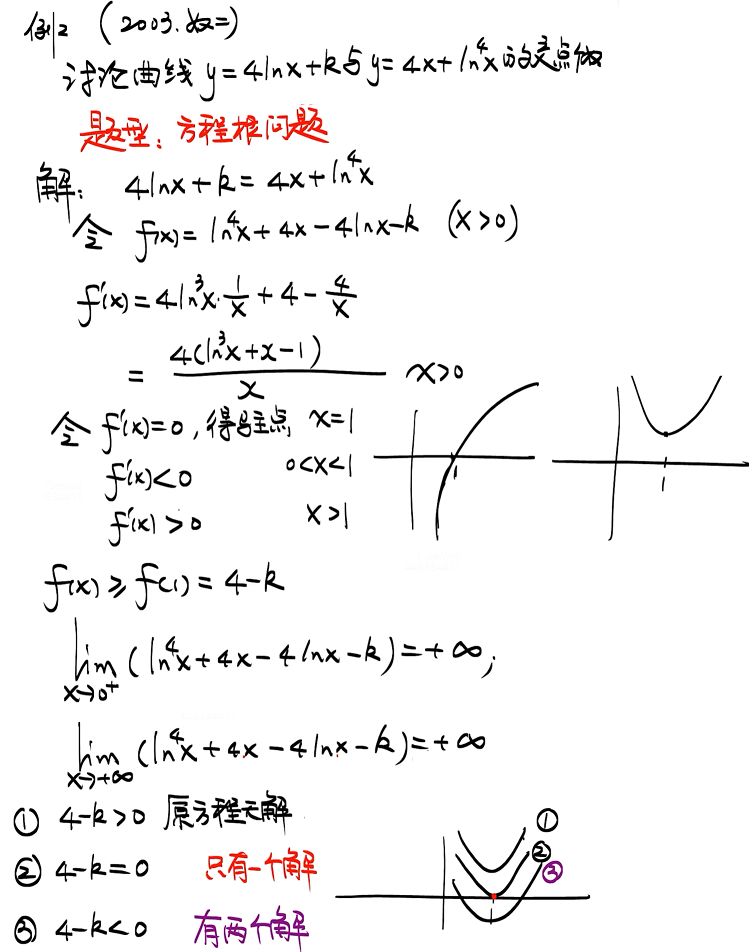 例2 (2003.数二)
讨论曲线 y=4lnx+k与y=4x+ln⁴x的交点个数
题型：方程根问题
解： 4lnx+k=4x+ln⁴x
令 f(x)=ln⁴x+4x-4lnx-k (x>0)
f'(x)=4ln³x·1/x+4-4/x
= 4(ln³x+x-1)/x x>0
令 f'(x)=0, 得驻点 x=1
f'(x)<0 0<x<1
f'(x)>0 x>1
1 1
f(x)≥f(1)=4-k
lim x→0⁺ (ln⁴x+4x-4lnx-k)=+∞;
lim x→+∞ (ln⁴x+4x-4lnx-k)=+∞
① 4-k>0 原方程无解
② 4-k=0 只有一个解
③ 4-k<0 有两个解
①
②
③
1